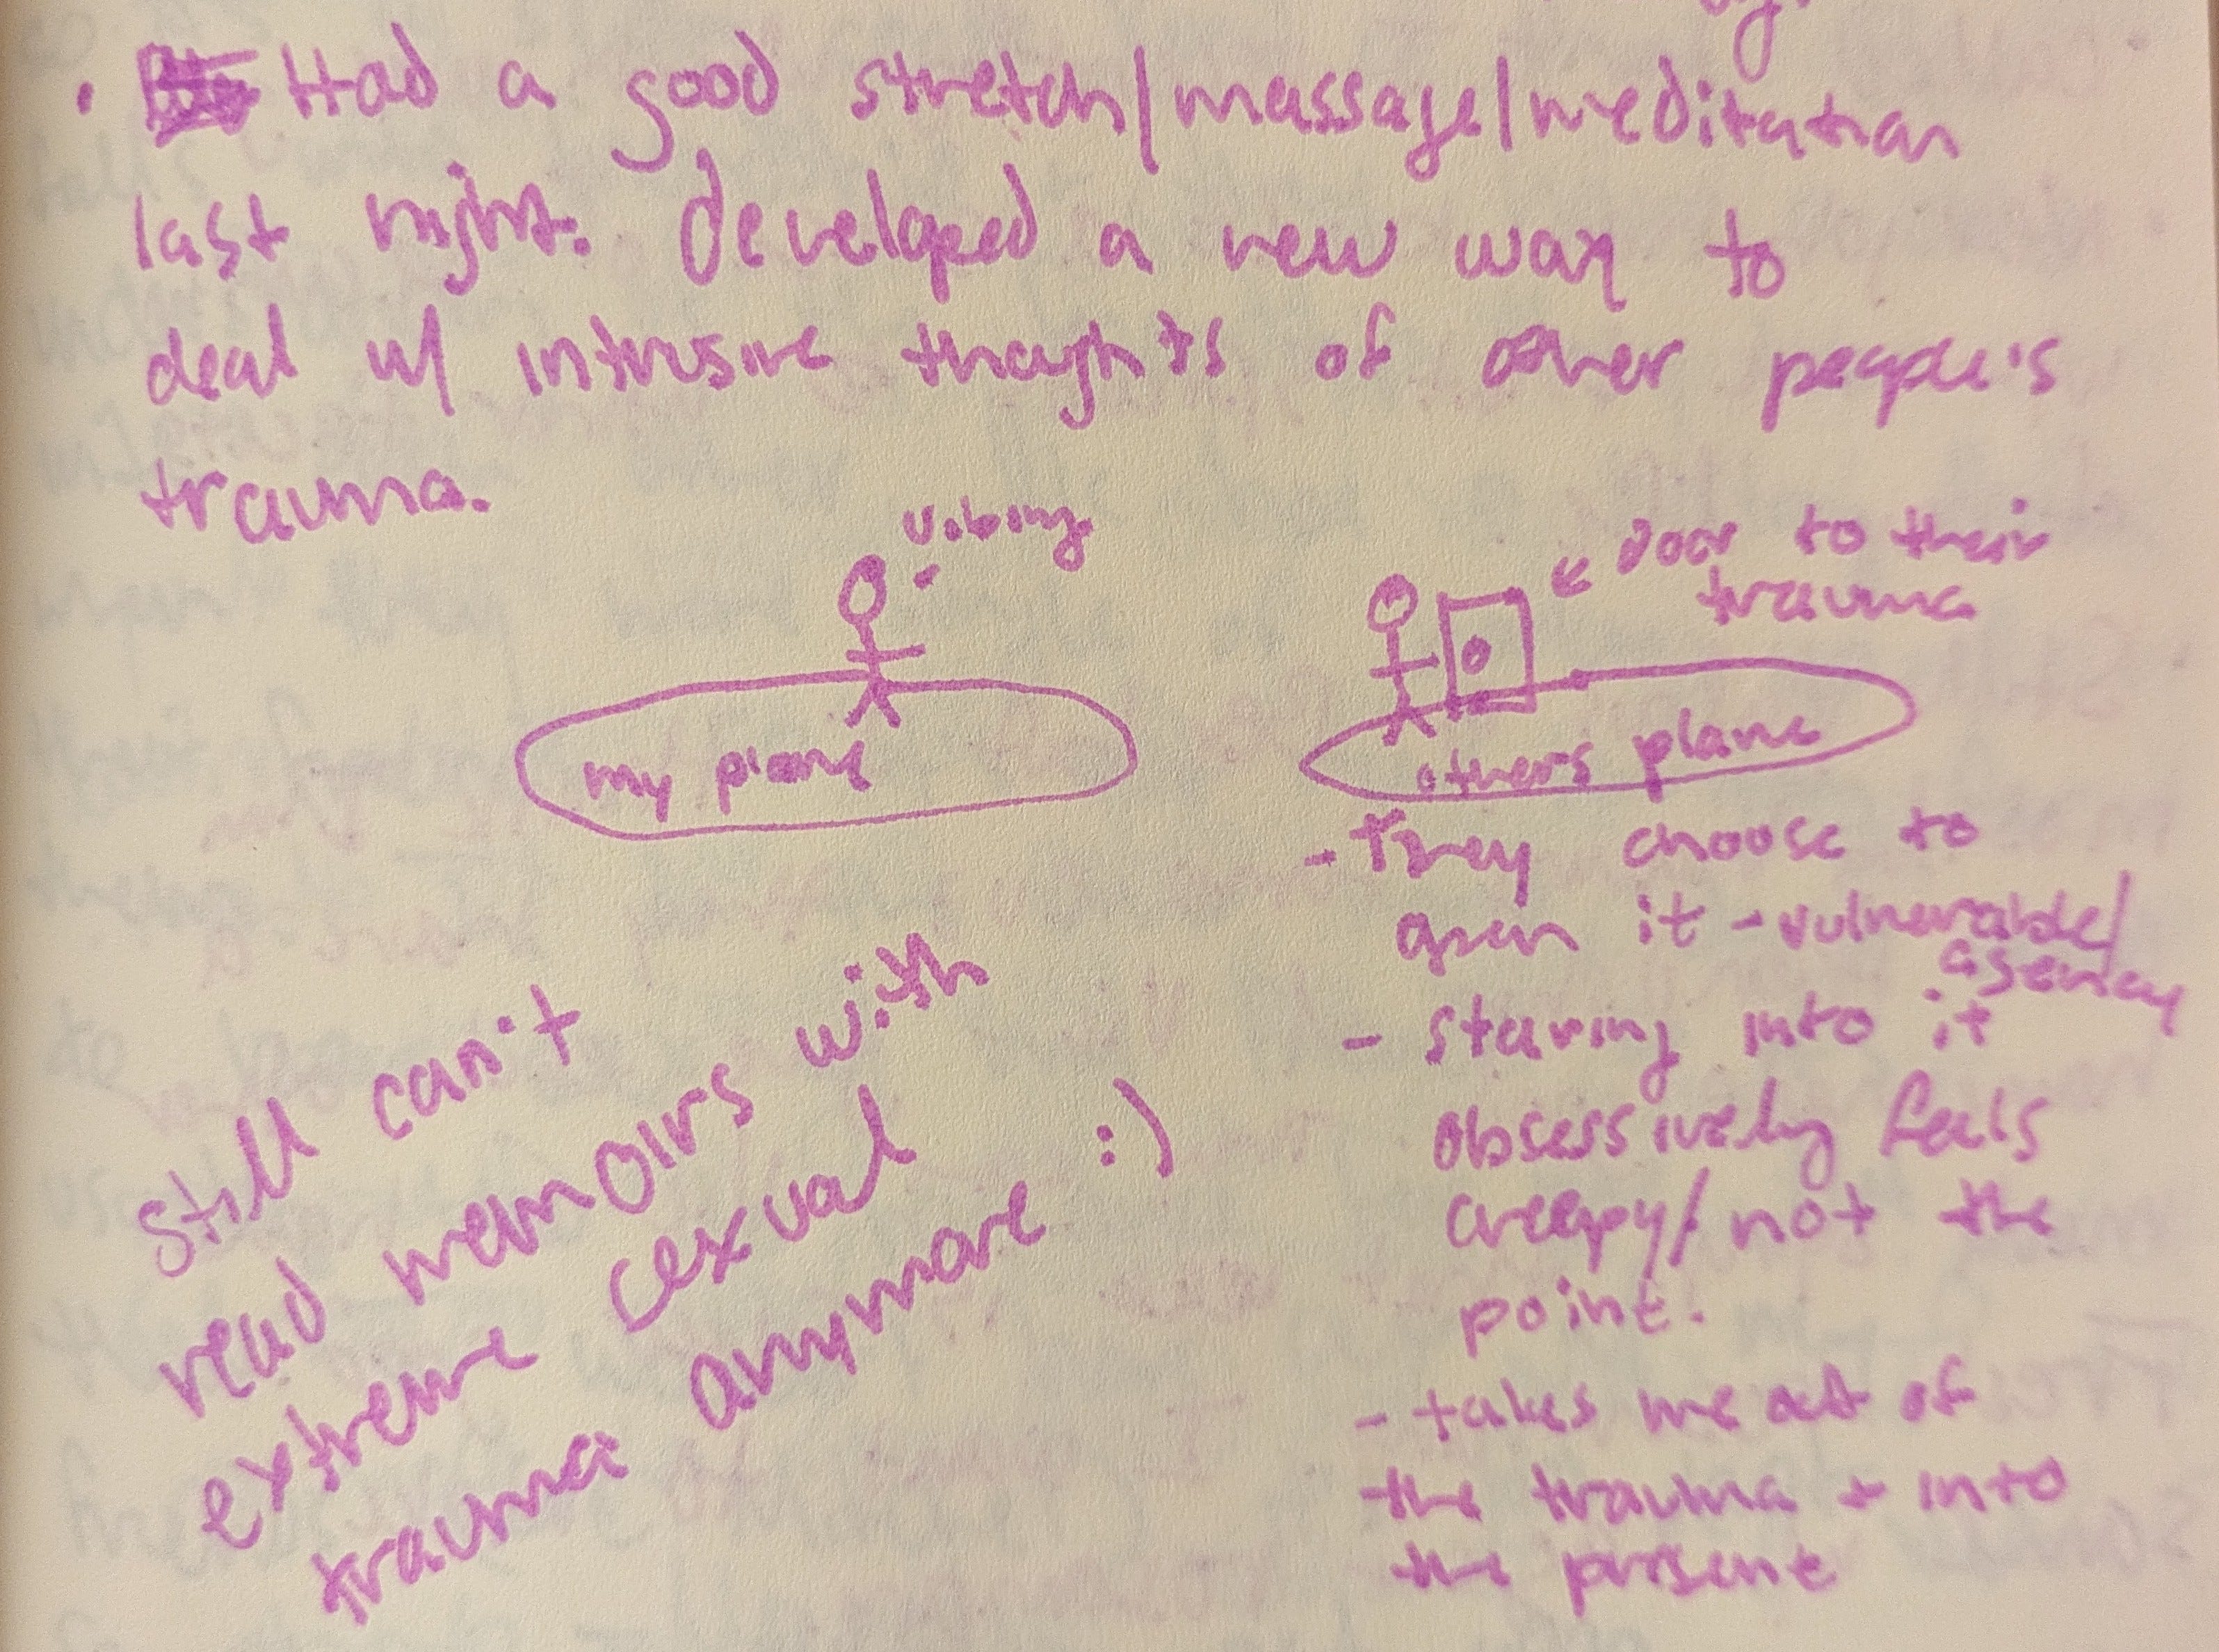 • Had a good stretch/massage/meditation
last night. Developed a new way to
deal w/ intrusive thoughts of other people's
trauma.
vibing
my plane
← Door to their
trauma
others plane
- They choose to
open it - vulnerable/
agency
- Staring into it
obsessively feels
creepy/not the
point.
- takes me out of
the trauma + into
the present
Still can't
read memoirs with
extreme sexual
trauma anymore :)